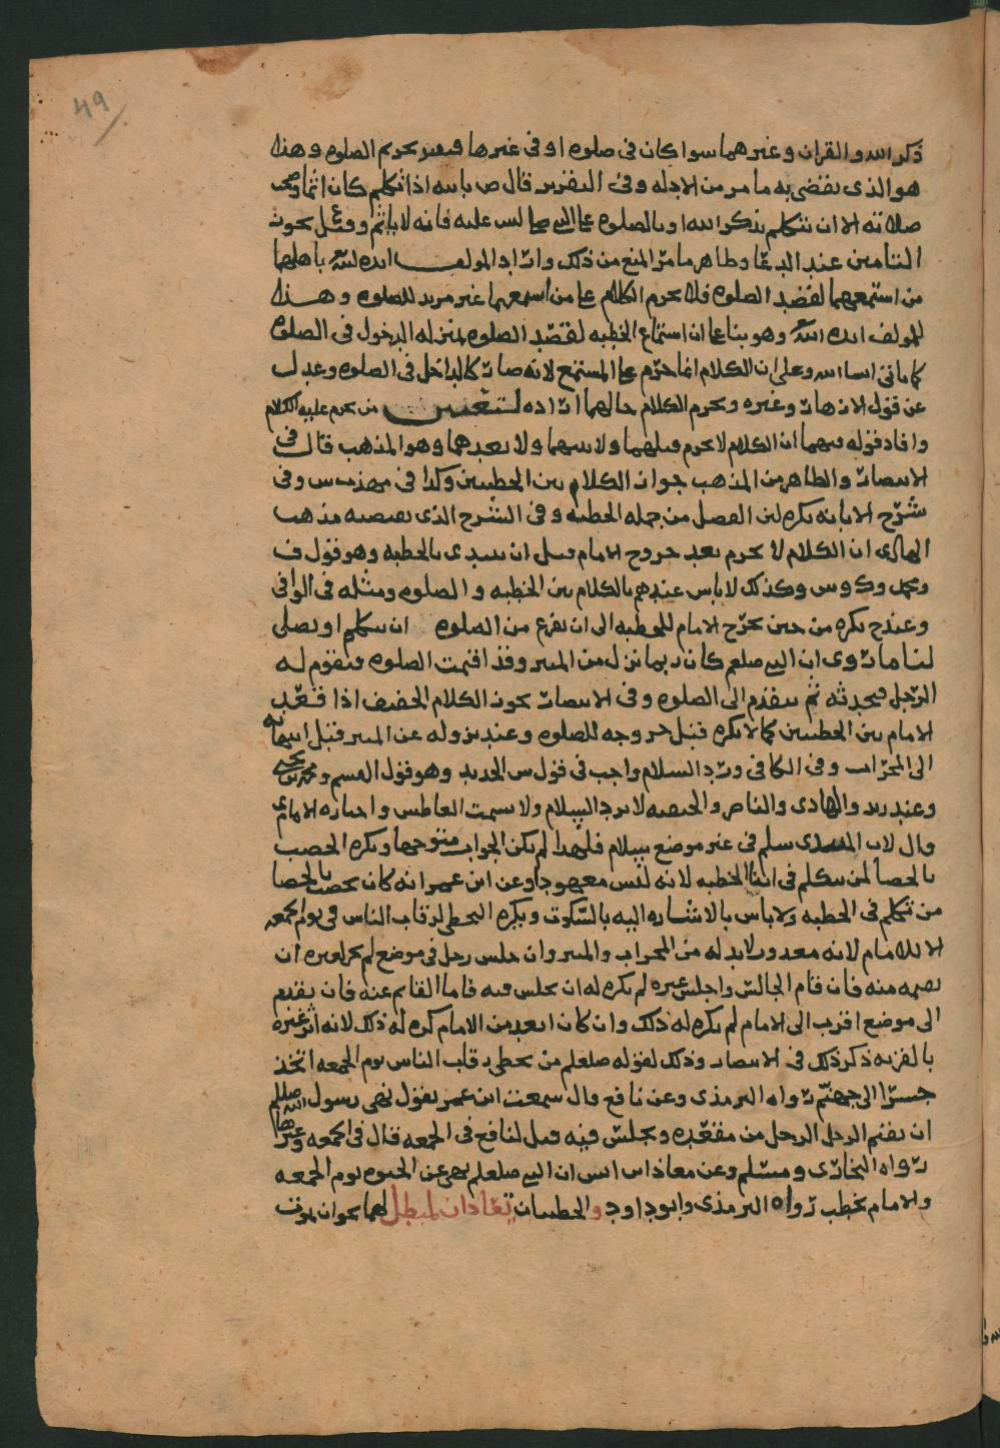 49
ذكر الله والقران وغيرهما سوا كان في صلوه او في غيرها فبعد تحريم الصلوه وهذا
هو الذي يقضي به ما مر من الادله وفي التقرير قال ص بالله اذا تكلم كان اثما وصحت
صلاته الا ان يتكلم بذكر الله او بالصلوه على النبي صلى الله عليه فانه لا ياثم وقيل يجوز
التامين عند الدعا وظاهر ما مر المنع من ذلك واراد المولف ايده الله باهلها
من استمعهما لقصد الصلوه فلا يحرم الكلام على من اسمعهما غير مريد للصلوه وهذا
للمولف ايده الله وهو بنا على ان استماع الخطبه لقصد الصلوه بمنزله الدخول في الصلوه
كما ياتي ان شا الله وعلى ان الكلام انما حرم على المستمع لانه صار كالداخل في الصلوه وعدل
عن قول الازهار وغيره ويحرم الكلام حالهما اراده لتعيين من يحرم عليه الكلام
وافاد قوله فيهما ان الكلام لا يحرم قبلهما ولا بينهما ولا بعدهما وهو المذهب قال في
الانتصار والظاهر من المذهب جواز الكلام بين الخطبتين وكذا في مهذب س وفي
شرح الابانه يكره لان الفصل من جمله الخطبه وفي الشرح الذي يقتضيه مذهب
الهادي ان الكلام لا يحرم بعد خروج الامام قبل ان يبتدي بالخطبه وهو قول ف
ومحمد وك وس وكذلك لا باس عندهم بالكلام بين الخطبه والصلوه ومثله في الوافي
وعند ح يكره من حين يخرج الامام للخطبه الى ان يفرغ من الصلوه ان يتكلم او يصلي
لنا ما روي ان النبي صلعم كان ربما نزل من المنبر وقد اقيمت الصلوه فيقوم له
الرجل فيحدثه ثم يتقدم الى الصلوه وفي الانتصار يجوز الكلام الخفيف اذا قعد
الامام بين الخطبتين كما لا يكره قبل خروجه للصلوه وعند نزوله عن المنبر قبل انتهائه
الى المحراب وفي الكافي ورد السلام واجب في قول س الجديد وهو قول القسم ومحمد بن يحيى
وعند زيد والهادي والناصر والحنفيه لا يرد السلام ولا يسمت العاطس واختاره الامام ي
قال لان المبتدي سلم في غير موضع سلام فلهذا لم يكن الجواب متوجها ويكره الحصب
بالحصا لمن يتكلم في اثنا الخطبه لانه ليس معهودا وعن ابن عمر انه كان يحصب بالحصا
من تكلم في الخطبه ولا باس بالاشاره اليه بالسكوت ويكره التخطي لرقاب الناس في يوم الجمعه
الا للامام لانه معذور لا بد له من المحراب والمنبر وان جلس رجل في موضع لم يجز لغيره ان
يقيمه منه فان قام الجالس واجلس غيره لم يكره له ان يجلس فيه فاما القايم عنه فان تقدم
الى موضع اقرب الى الامام لم يكره له ذلك وان كان ابعد من الامام كره له ذلك لانه اثر غيره
بالقربه ذكر ذلك في الانتصار وذلك لقوله صلعلم من تخطى رقاب الناس يوم الجمعه اتخذ
جسرا الى جهنم رواه الترمذي وعن نافع قال سمعت ابن عمر يقول نهى رسول الله صللم
ان يقيم الرجل الرجل من مقعده ويجلس فيه قيل لنافع في الجمعه قال في الجمعه وغيرها
رواه البخاري ومسلم وعن معاذ بن انس ان النبي صلعلم نهى عن الحبوه يوم الجمعه
والامام يخطب رواه الترمذي وابو داود والخطبتان تعادان لمبطل لهما نحو ان يموت